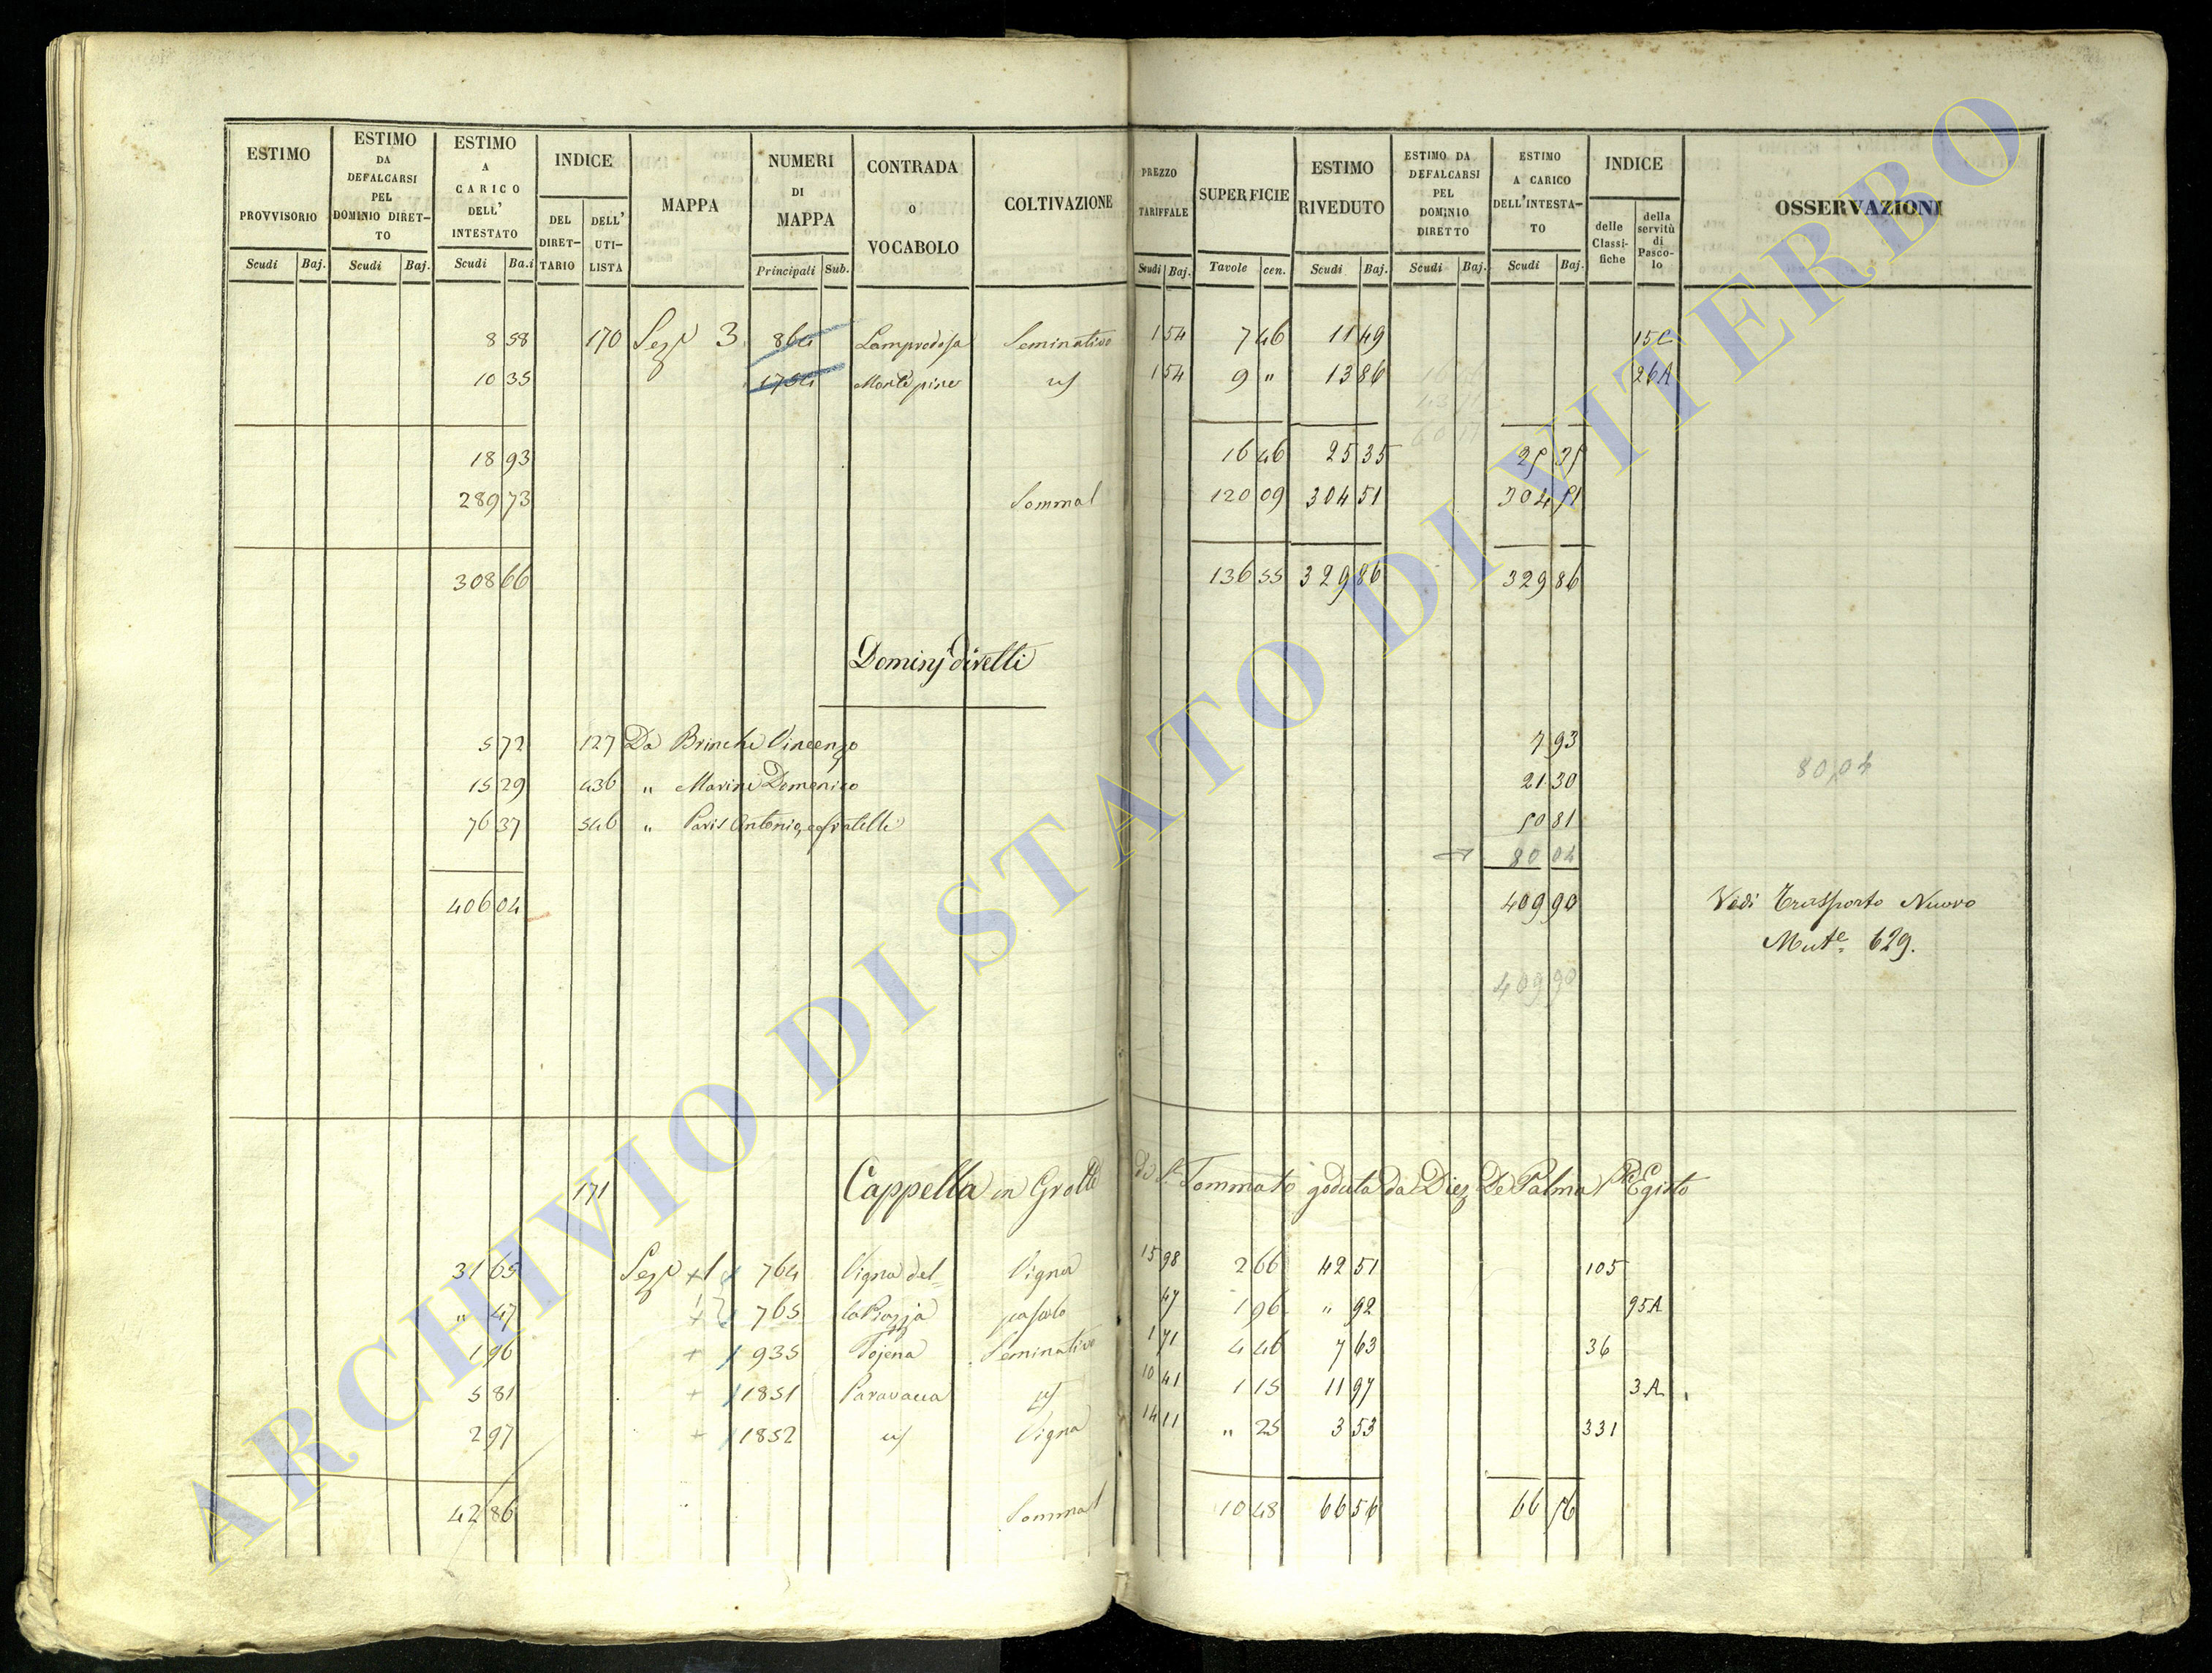 ESTIMO PROVVISORIO
Scudi Baj.
ESTIMO DA DEFALCARSI PEL DOMINIO DIRET-TO
Scudi Baj.
ESTIMO A CARICO DELL' INTESTATO
Scudi Ba.i
INDICE
DEL DIRET-TARIO
DELL' UTI-LISTA
MAPPA
NUMERI DI MAPPA
Principali Sub.
CONTRADA o VOCABOLO
COLTIVAZIONE
PREZZO TARIFFALE
Scudi Baj.
SUPERFICIE
Tavole cen.
ESTIMO RIVEDUTO
Scudi Baj.
ESTIMO DA DEFALCARSI PEL DOMINIO DIRETTO
Scudi Baj.
ESTIMO A CARICO DELL'INTESTA-TO
Scudi Baj.
INDICE
delle Classi-fiche
della servitù di Pasco-lo
OSSERVAZIONI
8 58 170 Sez. 3 864 Seminativo 1 54 7 46 11 49 15C
10 35 1754 1 54 9 " 13 86 26A
18 93 16 46 25 35 25 35
289 73 Somma 120 09 304 51 304 51
308 66 136 55 329 86 329 86
Dominj diretti
5 72 127 Da Vincenzo 7 93
80,04
15 29 436 " Marini Domenico 21 30
76 37 546 " Paris Antonio, e fratelli 50 81
80 04
406 04 409 90 Vedi Trasporto Nuovo
Mut.e 629.
409 90
171 Cappella in Grotte di S. Tommaso goduta da Diez De Palma Egisto
31 65 Sez. 1 764 Vigna del= Vigna 15 98 2 66 42 51 105
" 47 765 la Piazza pascolo 47 1 96 " 92 95A
1 96 935 Tojena Seminativo 1 71 4 46 7 63 36
5 81 1851 Paravacca 10 41 1 15 11 97 3A
2 97 1852 Vigna 14 11 " 25 3 53 331
42 86 Somma 10 48 66 56 66 56
ARCHIVIO DI STATO DI VITERBO